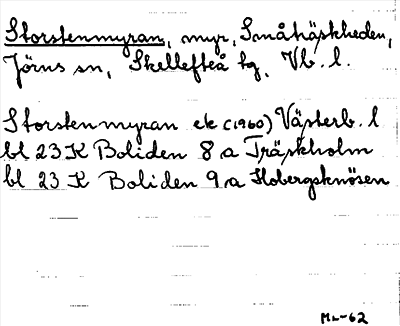 Storstenmyran, myr, Småträskheden,
Jörns sn, Skellefteå tg, Vb. l.
Storstenmyran ek (1960) Västerb. l
bl 23 K Boliden 8 a Träskholm
bl 23 K Boliden 9 a Flobergsknösen
ML-62